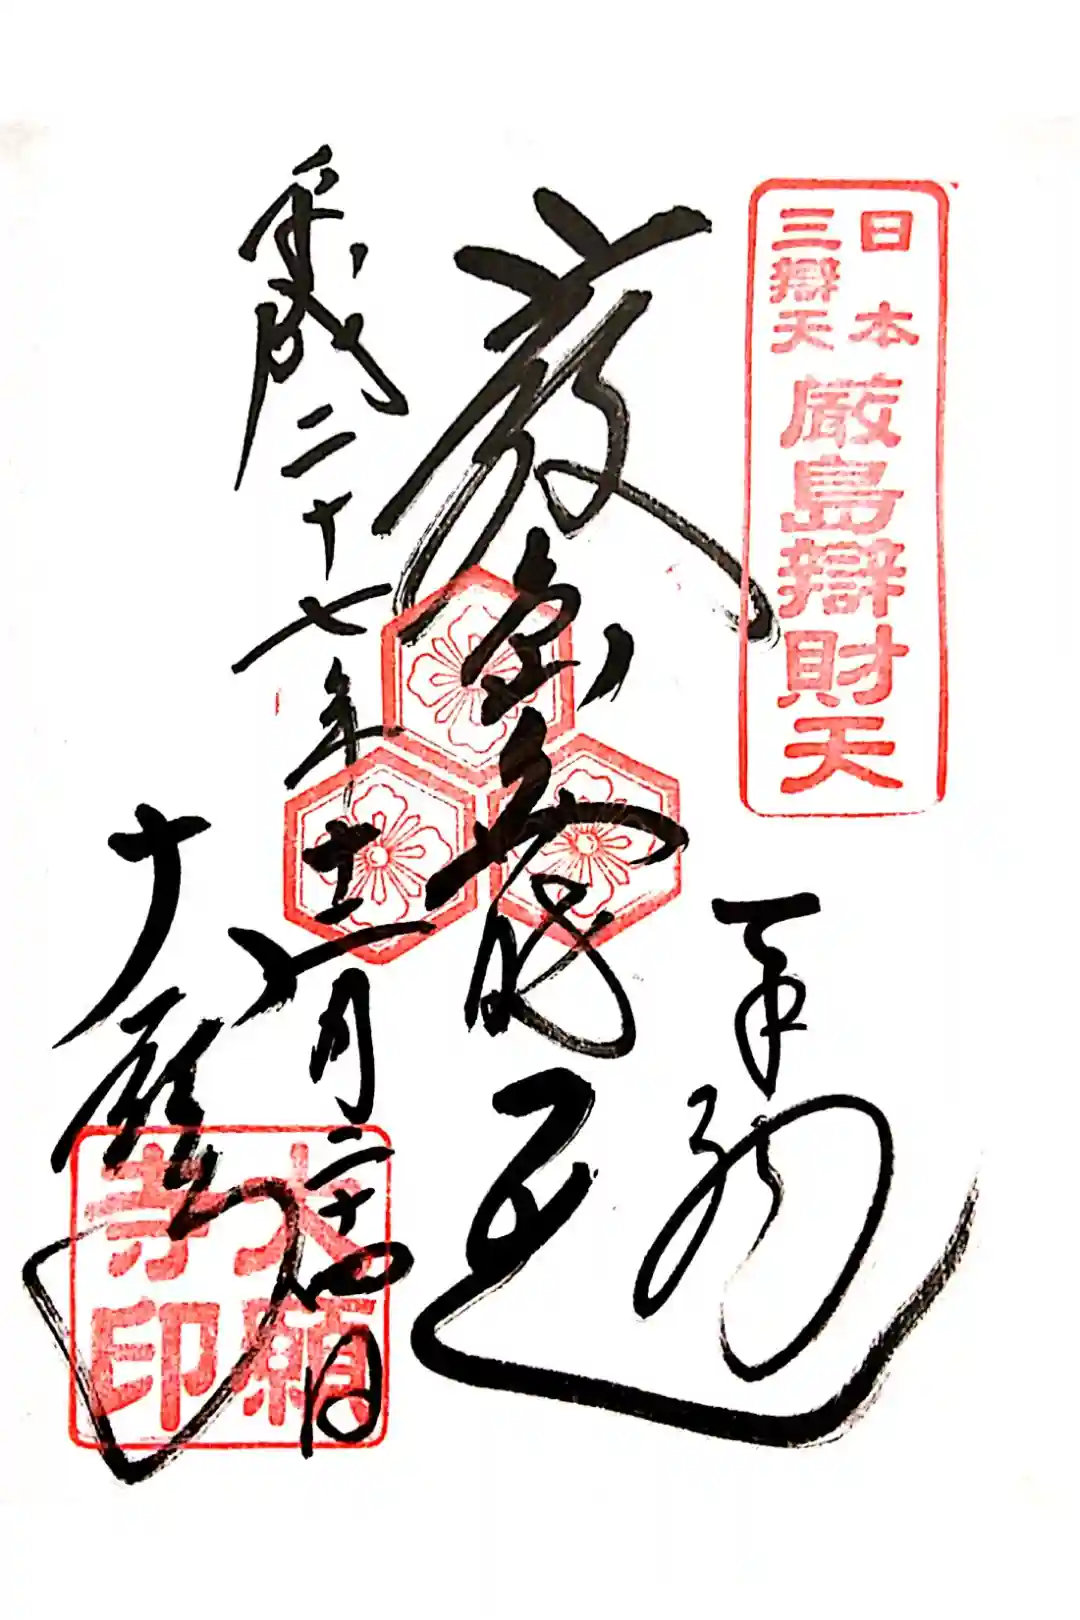 日本
三辯天
厳島辯財天
奉拝
厳島弁財天
平成二十七年十二月二十四日
大願寺
大願
寺印